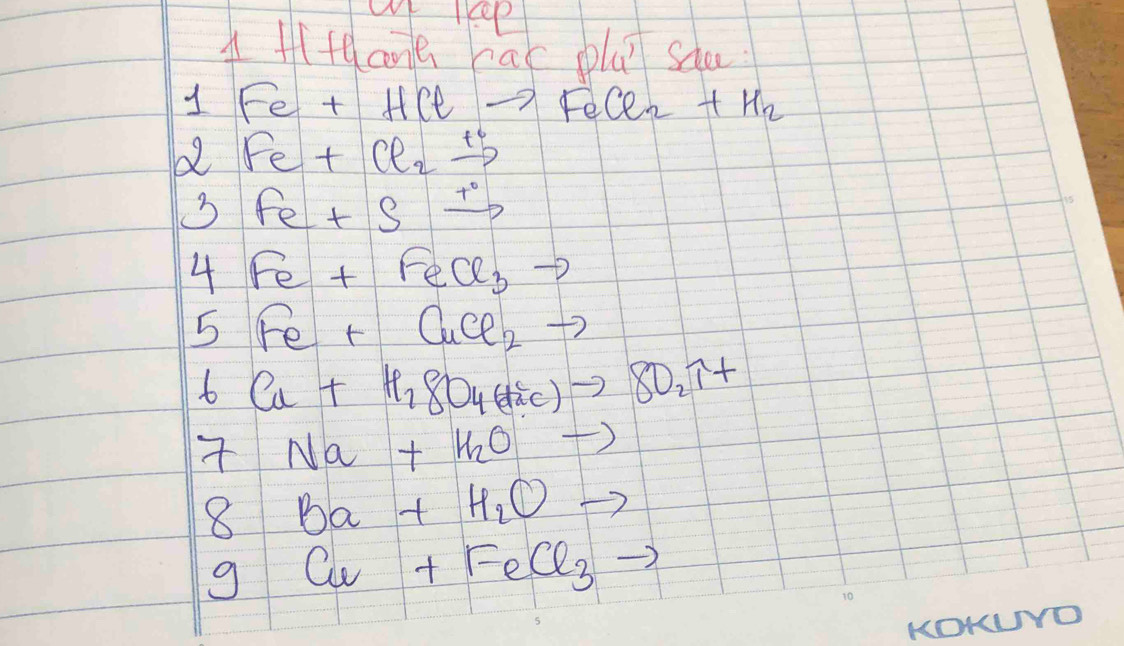 ôn tập
1 H thành các phư sau:
1 Fe + HCl → FeCl₂ + H₂
2 Fe + Cl₂ t° →
3 Fe + S t° →
4 Fe + FeCl₃ →
5 Fe + CuCl₂ →
6 Cu + H₂SO₄(đặc) → SO₂↑ +
7 Na + H₂O →
8 Ba + H₂O →
9 Cu + FeCl₃ →
15
5
10
KOKUYO